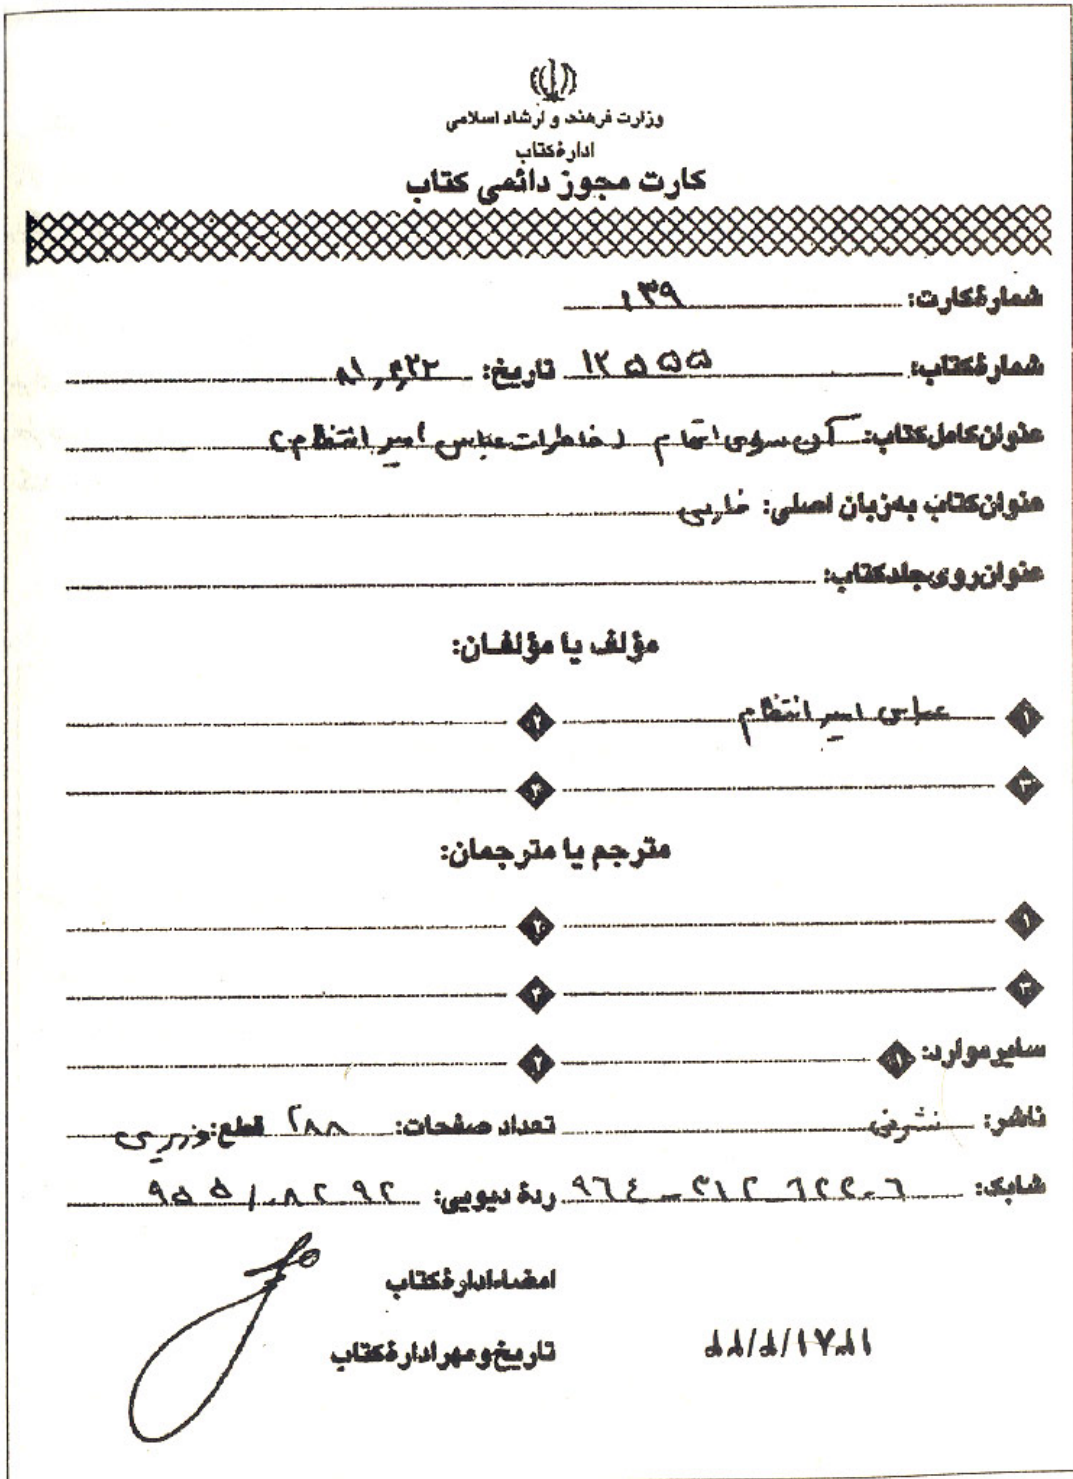 وزارت فرهنگ و ارشاد اسلامی
ادارهٔ کتاب
کارت مجوز دائمی کتاب
شمارهٔ کارت: ۱۳۹
شمارهٔ کتاب: ۱۲۵۵۵ تاریخ:
عنوان کامل کتاب: آن سوی اتهام (خاطرات عباس امیر انتظام)
عنوان کتاب به زبان اصلی: فارسی
عنوان روی جلد کتاب:
مؤلف یا مؤلفان:
۱ عباس امیر انتظام ۲
۳ ۴
مترجم یا مترجمان:
۱ ۲
۳ ۴
سایر موارد: ۱ ۲
ناشر: نشر نی تعداد صفحات: ۲۸۸ قطع: وزیری
شابک: ردهٔ دیویی: ۹۵۵/۰۸۲۰۹۲
امضاء ادارهٔ کتاب
تاریخ و مهر ادارهٔ کتاب